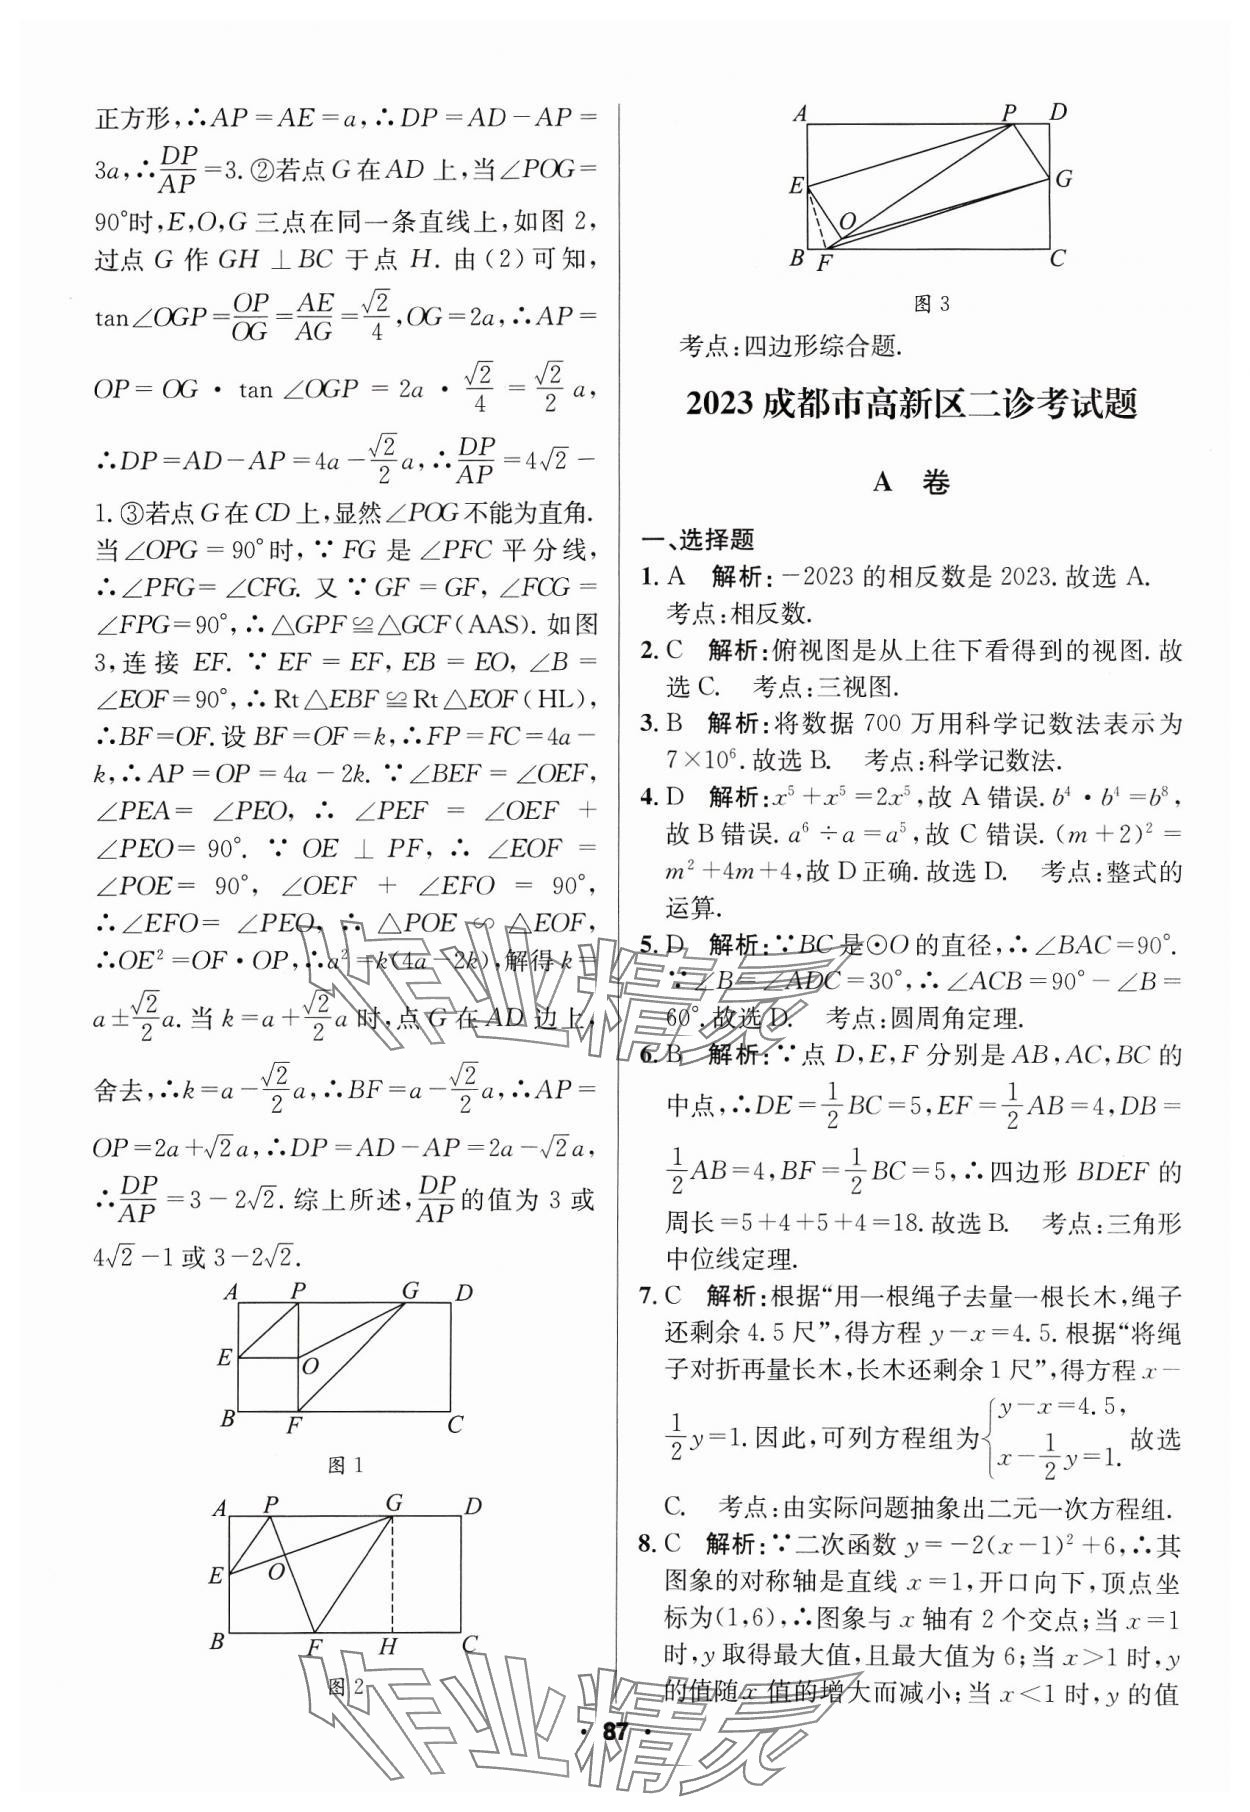 正方形,∴AP=AE=a,∴DP=AD-AP=
3a,∴DP/AP=3.②若点G在AD上,当∠POG=
90°时,E,O,G三点在同一条直线上,如图2,
过点G作GH⊥BC于点H.由(2)可知,
tan∠OGP=OP/OG=AE/AG=√2/4,OG=2a,∴AP=
OP=OG·tan∠OGP=2a·√2/4=√2/2 a,
∴DP=AD-AP=4a-√2/2 a,∴DP/AP=4√2-
1.③若点G在CD上,显然∠POG不能为直角.
当∠OPG=90°时,∵FG是∠PFC平分线,
∴∠PFG=∠CFG.又∵GF=GF,∠FCG=
∠FPG=90°,∴△GPF≌△GCF(AAS).如图
3,连接EF.∵EF=EF,EB=EO,∠B=
∠EOF=90°,∴Rt△EBF≌Rt△EOF(HL),
∴BF=OF.设BF=OF=k,∴FP=FC=4a-
k,∴AP=OP=4a-2k.∵∠BEF=∠OEF,
∠PEA=∠PEO,∴∠PEF=∠OEF+
∠PEO=90°.∵OE⊥PF,∴∠EOF=
∠POE=90°,∠OEF+∠EFO=90°,
∴∠EFO=∠PEO,∴△POE∽△EOF,
∴OE²=OF·OP,∴a²=k(4a-2k),解得k=
a±√2/2 a.当k=a+√2/2 a时,点G在AD边上,
舍去,∴k=a-√2/2 a,∴BF=a-√2/2 a,∴AP=
OP=2a+√2a,∴DP=AD-AP=2a-√2a,
∴DP/AP=3-2√2.综上所述,DP/AP的值为3或
4√2-1或3-2√2.
A P G D
E O
B F C
图1
A P G D
E O
B F H C
图2
A P D
E G
O
B F C
图3
考点:四边形综合题.
2023成都市高新区二诊考试题
A 卷
一、选择题
1. A 解析:-2023的相反数是2023.故选A.
考点:相反数.
2. C 解析:俯视图是从上往下看得到的视图.故
选C. 考点:三视图.
3. B 解析:将数据700万用科学记数法表示为
7×10⁶.故选B. 考点:科学记数法.
4. D 解析:x⁵+x⁵=2x⁵,故A错误.b⁴·b⁴=b⁸,
故B错误.a⁶÷a=a⁵,故C错误.(m+2)²=
m²+4m+4,故D正确.故选D. 考点:整式的
运算.
5. D 解析:∵BC是⊙O的直径,∴∠BAC=90°.
∵∠B=∠ADC=30°,∴∠ACB=90°-∠B=
60°.故选D. 考点:圆周角定理.
6. B 解析:∵点D,E,F分别是AB,AC,BC的
中点,∴DE=1/2 BC=5,EF=1/2 AB=4,DB=
1/2 AB=4,BF=1/2 BC=5,∴四边形BDEF的
周长=5+4+5+4=18.故选B. 考点:三角形
中位线定理.
7. C 解析:根据“用一根绳子去量一根长木,绳子
还剩余4.5尺”,得方程y-x=4.5.根据“将绳
子对折再量长木,长木还剩余1尺”,得方程x-
1/2 y=1.因此,可列方程组为{y-x=4.5, x-1/2 y=1. 故选
C. 考点:由实际问题抽象出二元一次方程组.
8. C 解析:∵二次函数y=-2(x-1)²+6,∴其
图象的对称轴是直线x=1,开口向下,顶点坐
标为(1,6),∴图象与x轴有2个交点;当x=1
时,y取得最大值,且最大值为6;当x>1时,y
的值随x值的增大而减小;当x<1时,y的值
·87·
作业精灵
作业精灵